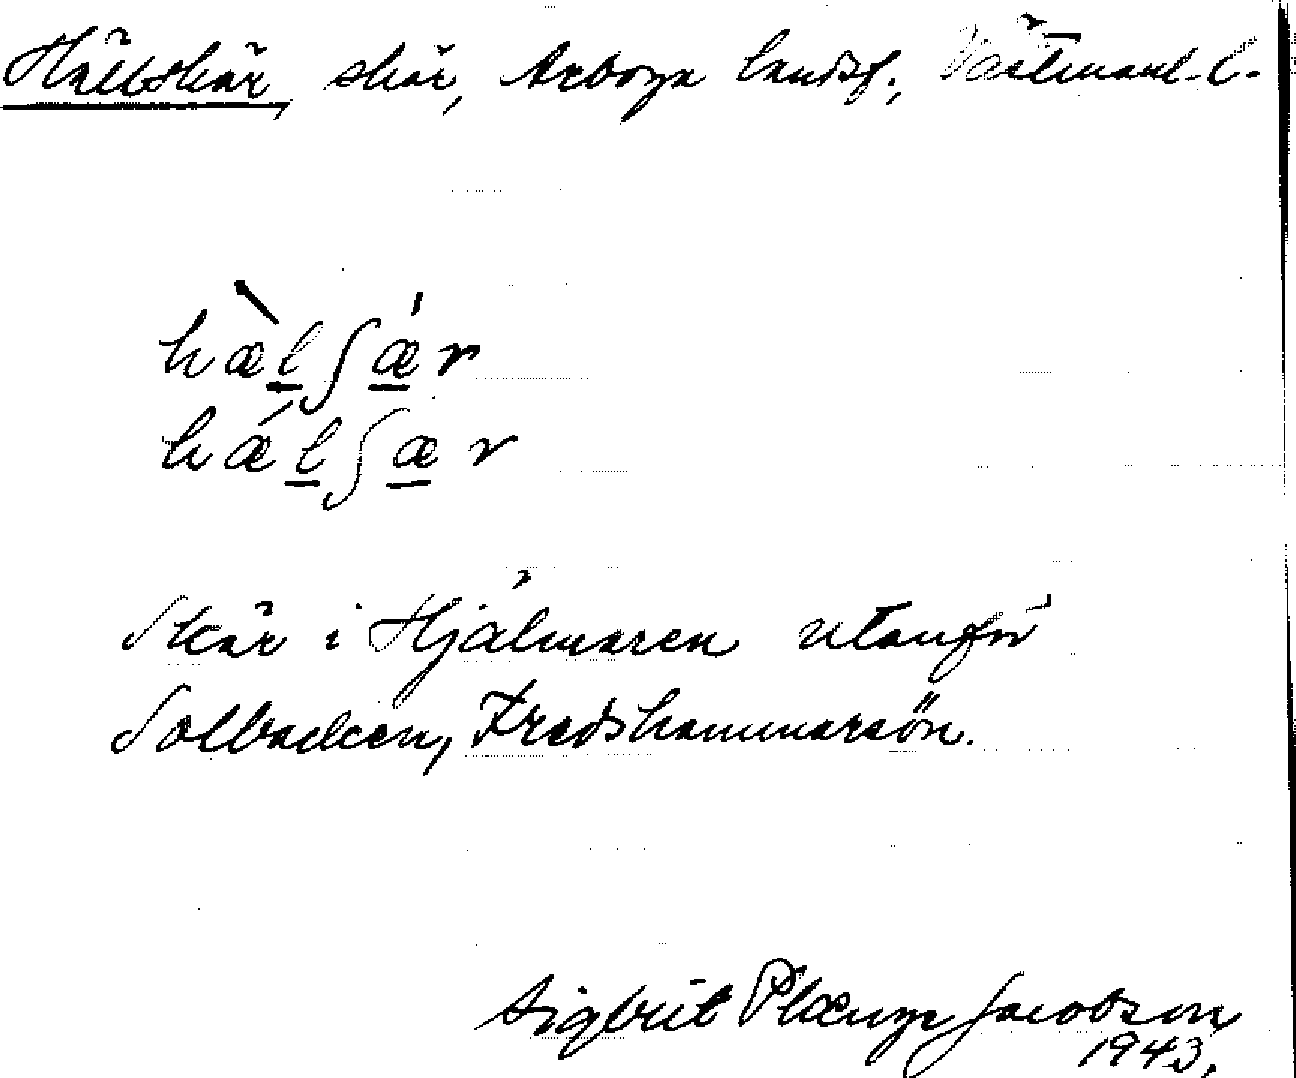 Hällskär, skär, Arboga landsf., Västmanl. l.
hæ̀lʃǽr
hǽlʃær
Skär i Hjälmaren utanför
Solbacken, Fredshammarsön.
Sigbrit Plænge Jacobson
1943.